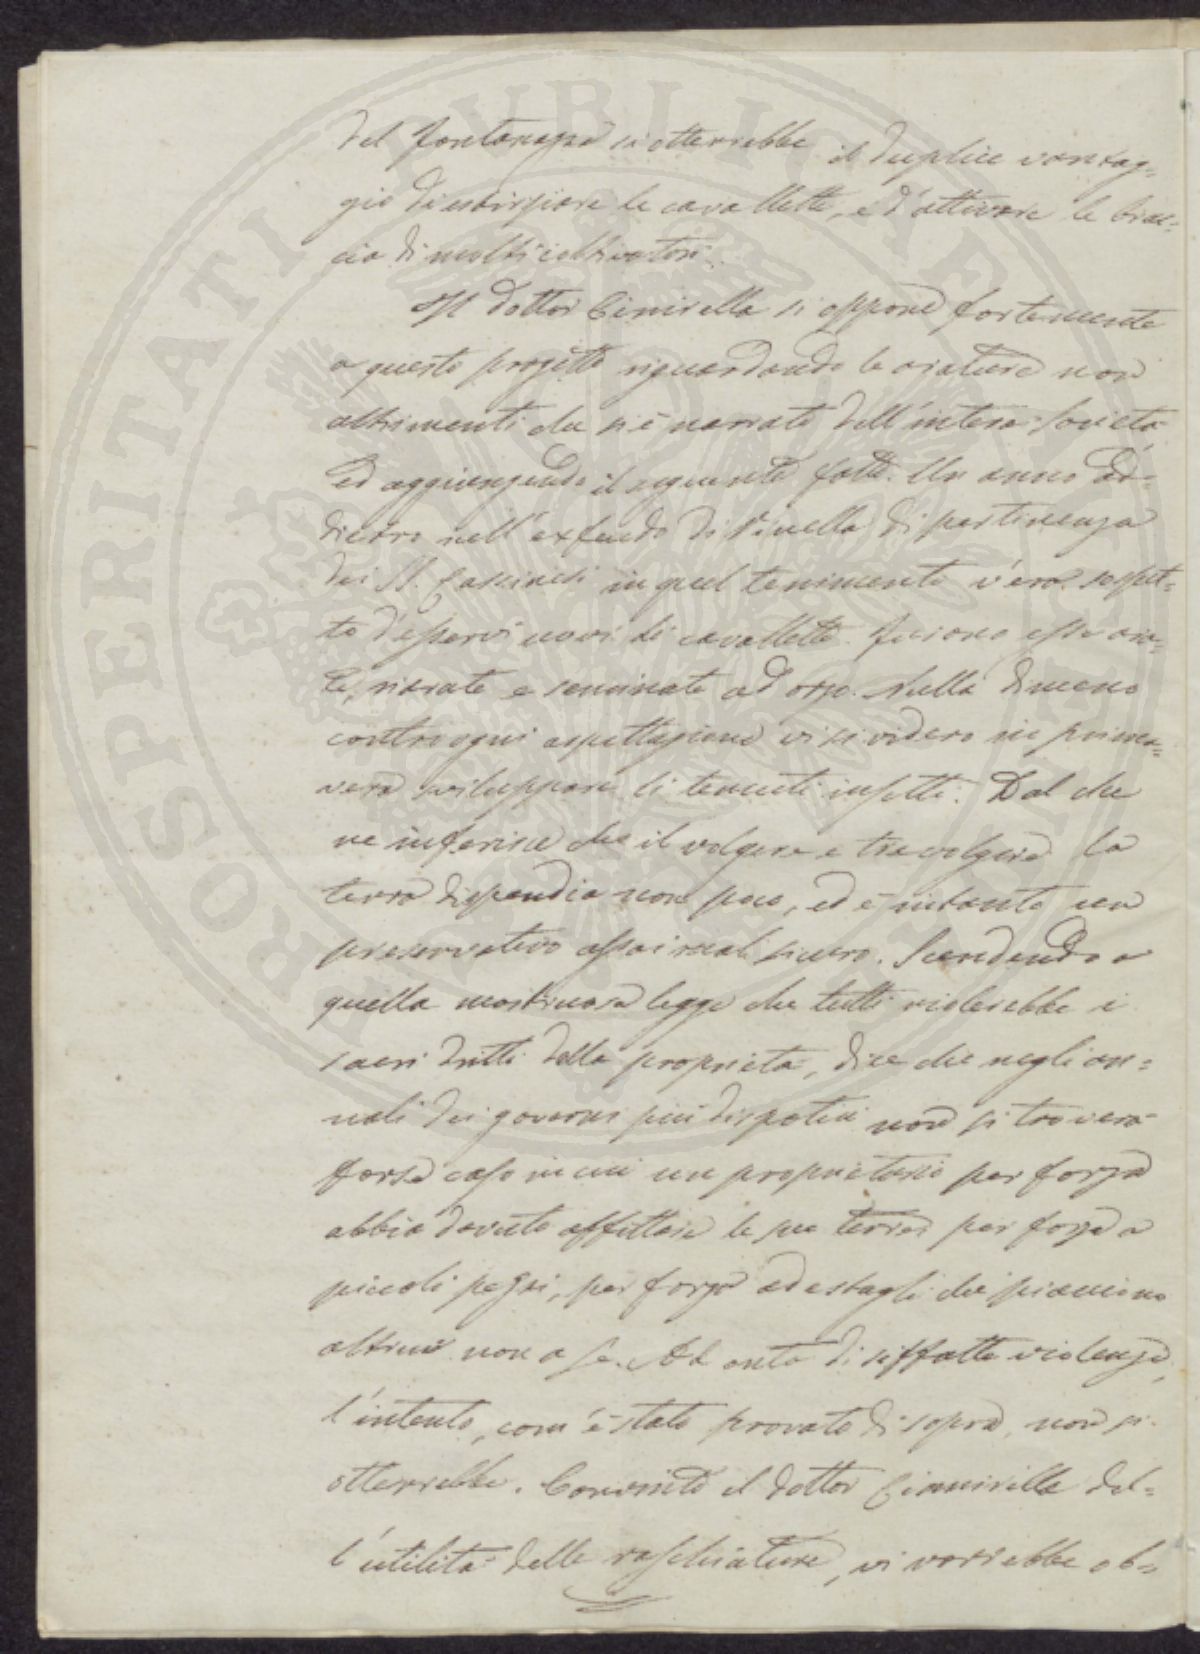 del Fontanazza si otterrebbe il duplice vantag=
gio di estirpare le cavallette, e d'attivare le brac=
cia di molti coltivatori.
Il dottor Cimirella si oppone fortemente
a questo progetto riguardando le arature non
altrimenti che si è narrato dell'intera Società
ed aggiungendo il seguente fatto. Un anno ad=
dietro nell'exfeudo di Vinella di pertinenza
dei SS. Cassinesi in quel tenimento v'era sospet=
to d'esservi uovi di cavallette. Furono esse ara=
te, riarate e seminate ad orzo. Nulla dimeno
contro ogni aspettazione vi si videro in prima=
vera sviluppare li temuti insetti. Dal che
ne inferisce che il volgere e travolgere la
terra dispendia non poco, ed è intanto un
preservativo assai mal sicuro. Scendendo a
quella mostruosa legge che tutti violerebbe i
sacri dritti della proprietà, dice che negli an=
nali dei governi più dispotici non si troverà
forse caso in cui un proprietario per forza
abbia dovuto affittare le sue terre per forza a
piccoli pezzi, per forza ad estagli che piacciono
altrui non a se. Ad onta di siffatte violenze,
l'intento, com'è stato provato di sopra, non si
otterrebbe. Convinto il dottor Cimmirella del=
l'utilità delle raschiature, vi vorrebbe ob=
PROSPERITATI PUBLICAE